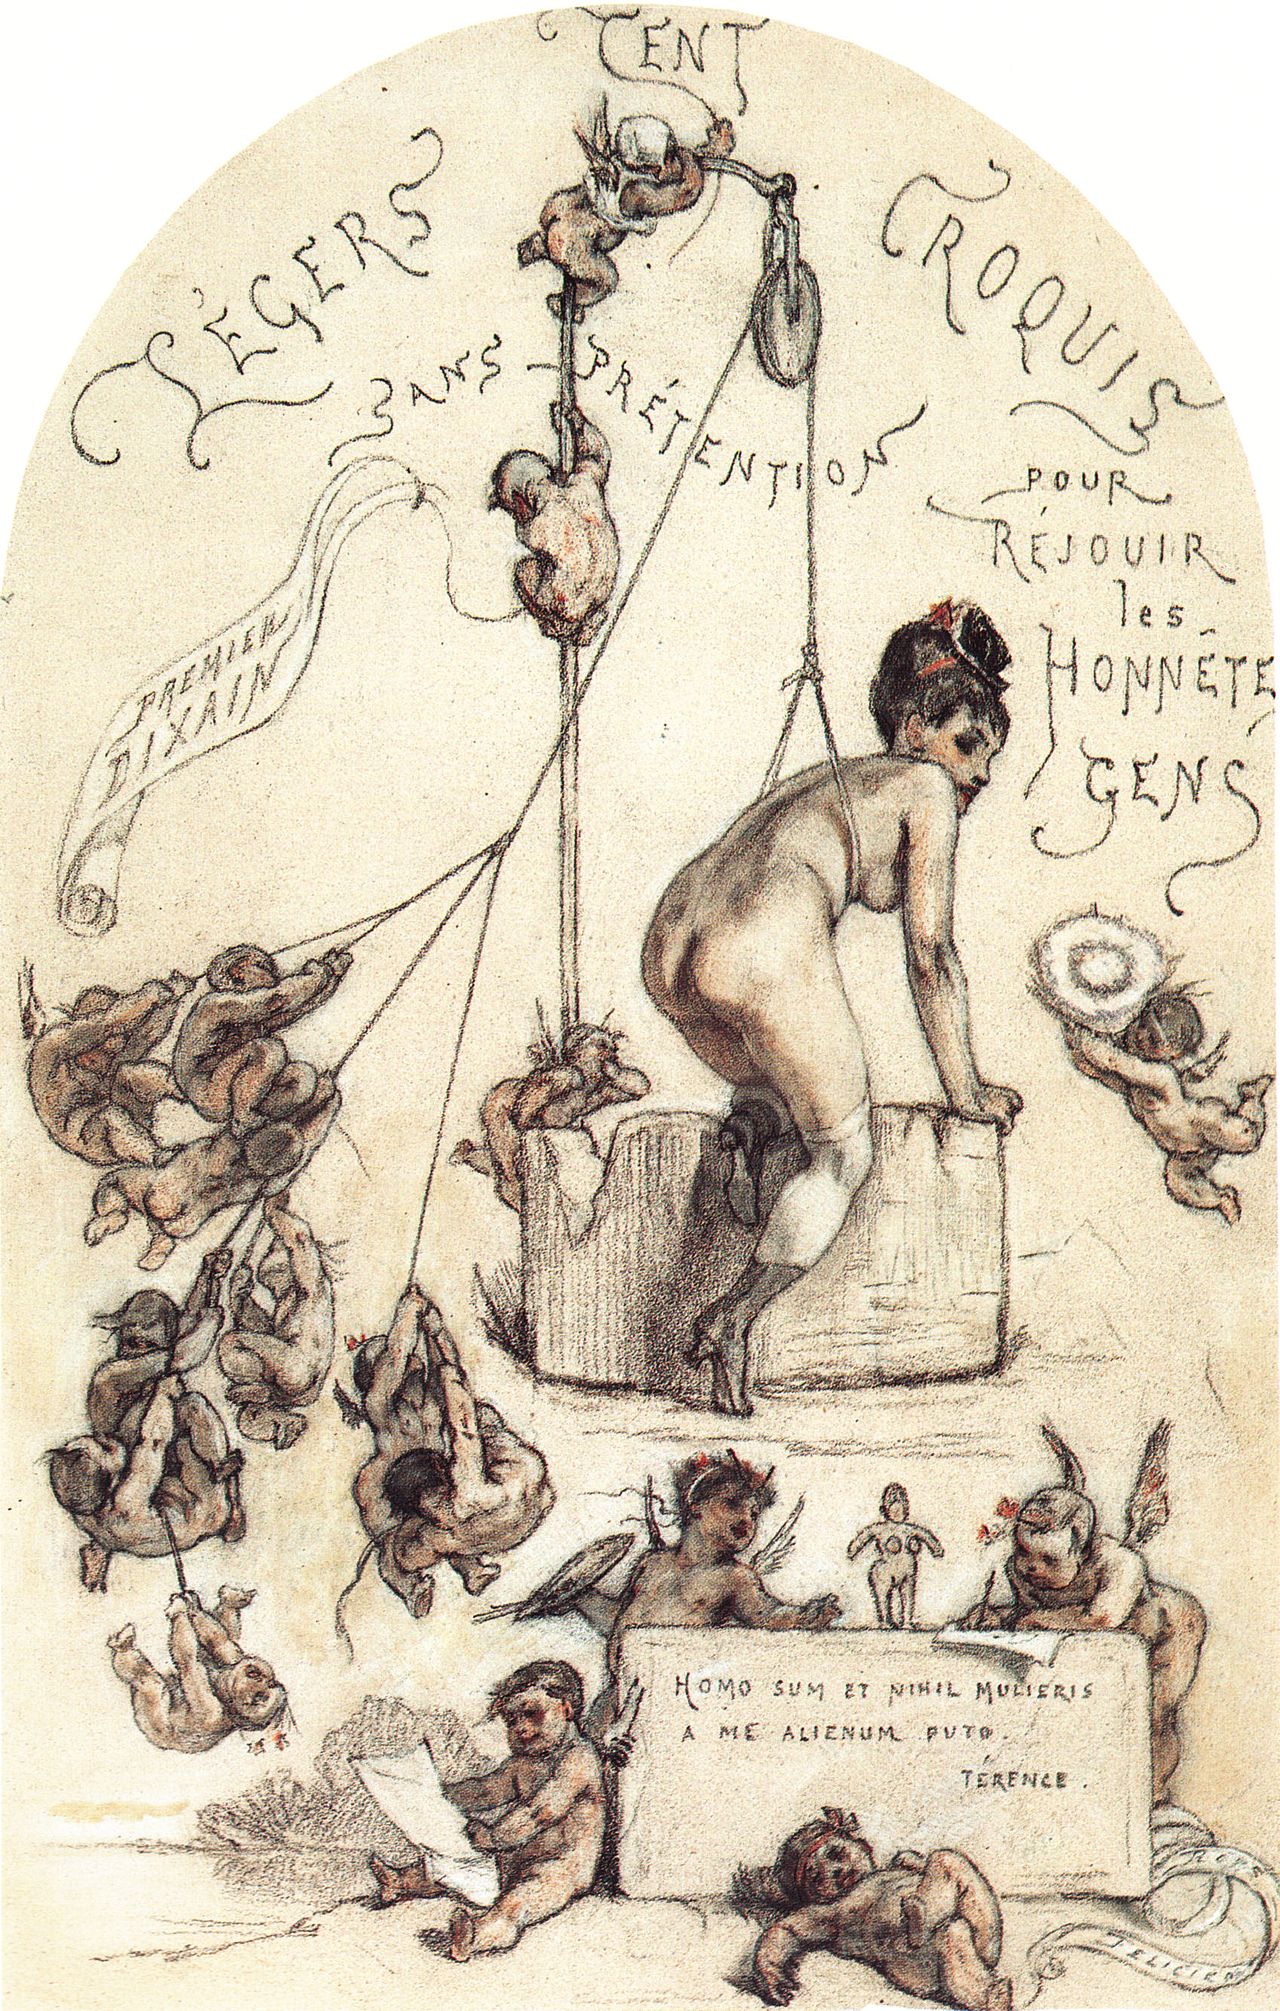 CENT
LÉGERS CROQUIS
SANS-PRÉTENTION
POUR
RÉJOUIR
les
HONNÊTE
GENS
PREMIER
DIXAIN
HOMO SUM ET NIHIL MULIERIS
A ME ALIENUM PUTO.
TÉRENCE.
ROPS
FELICIEN